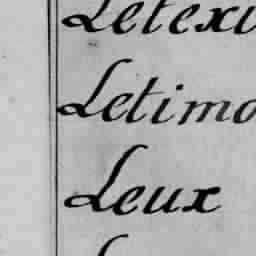 Letexi
Letimo
Leux